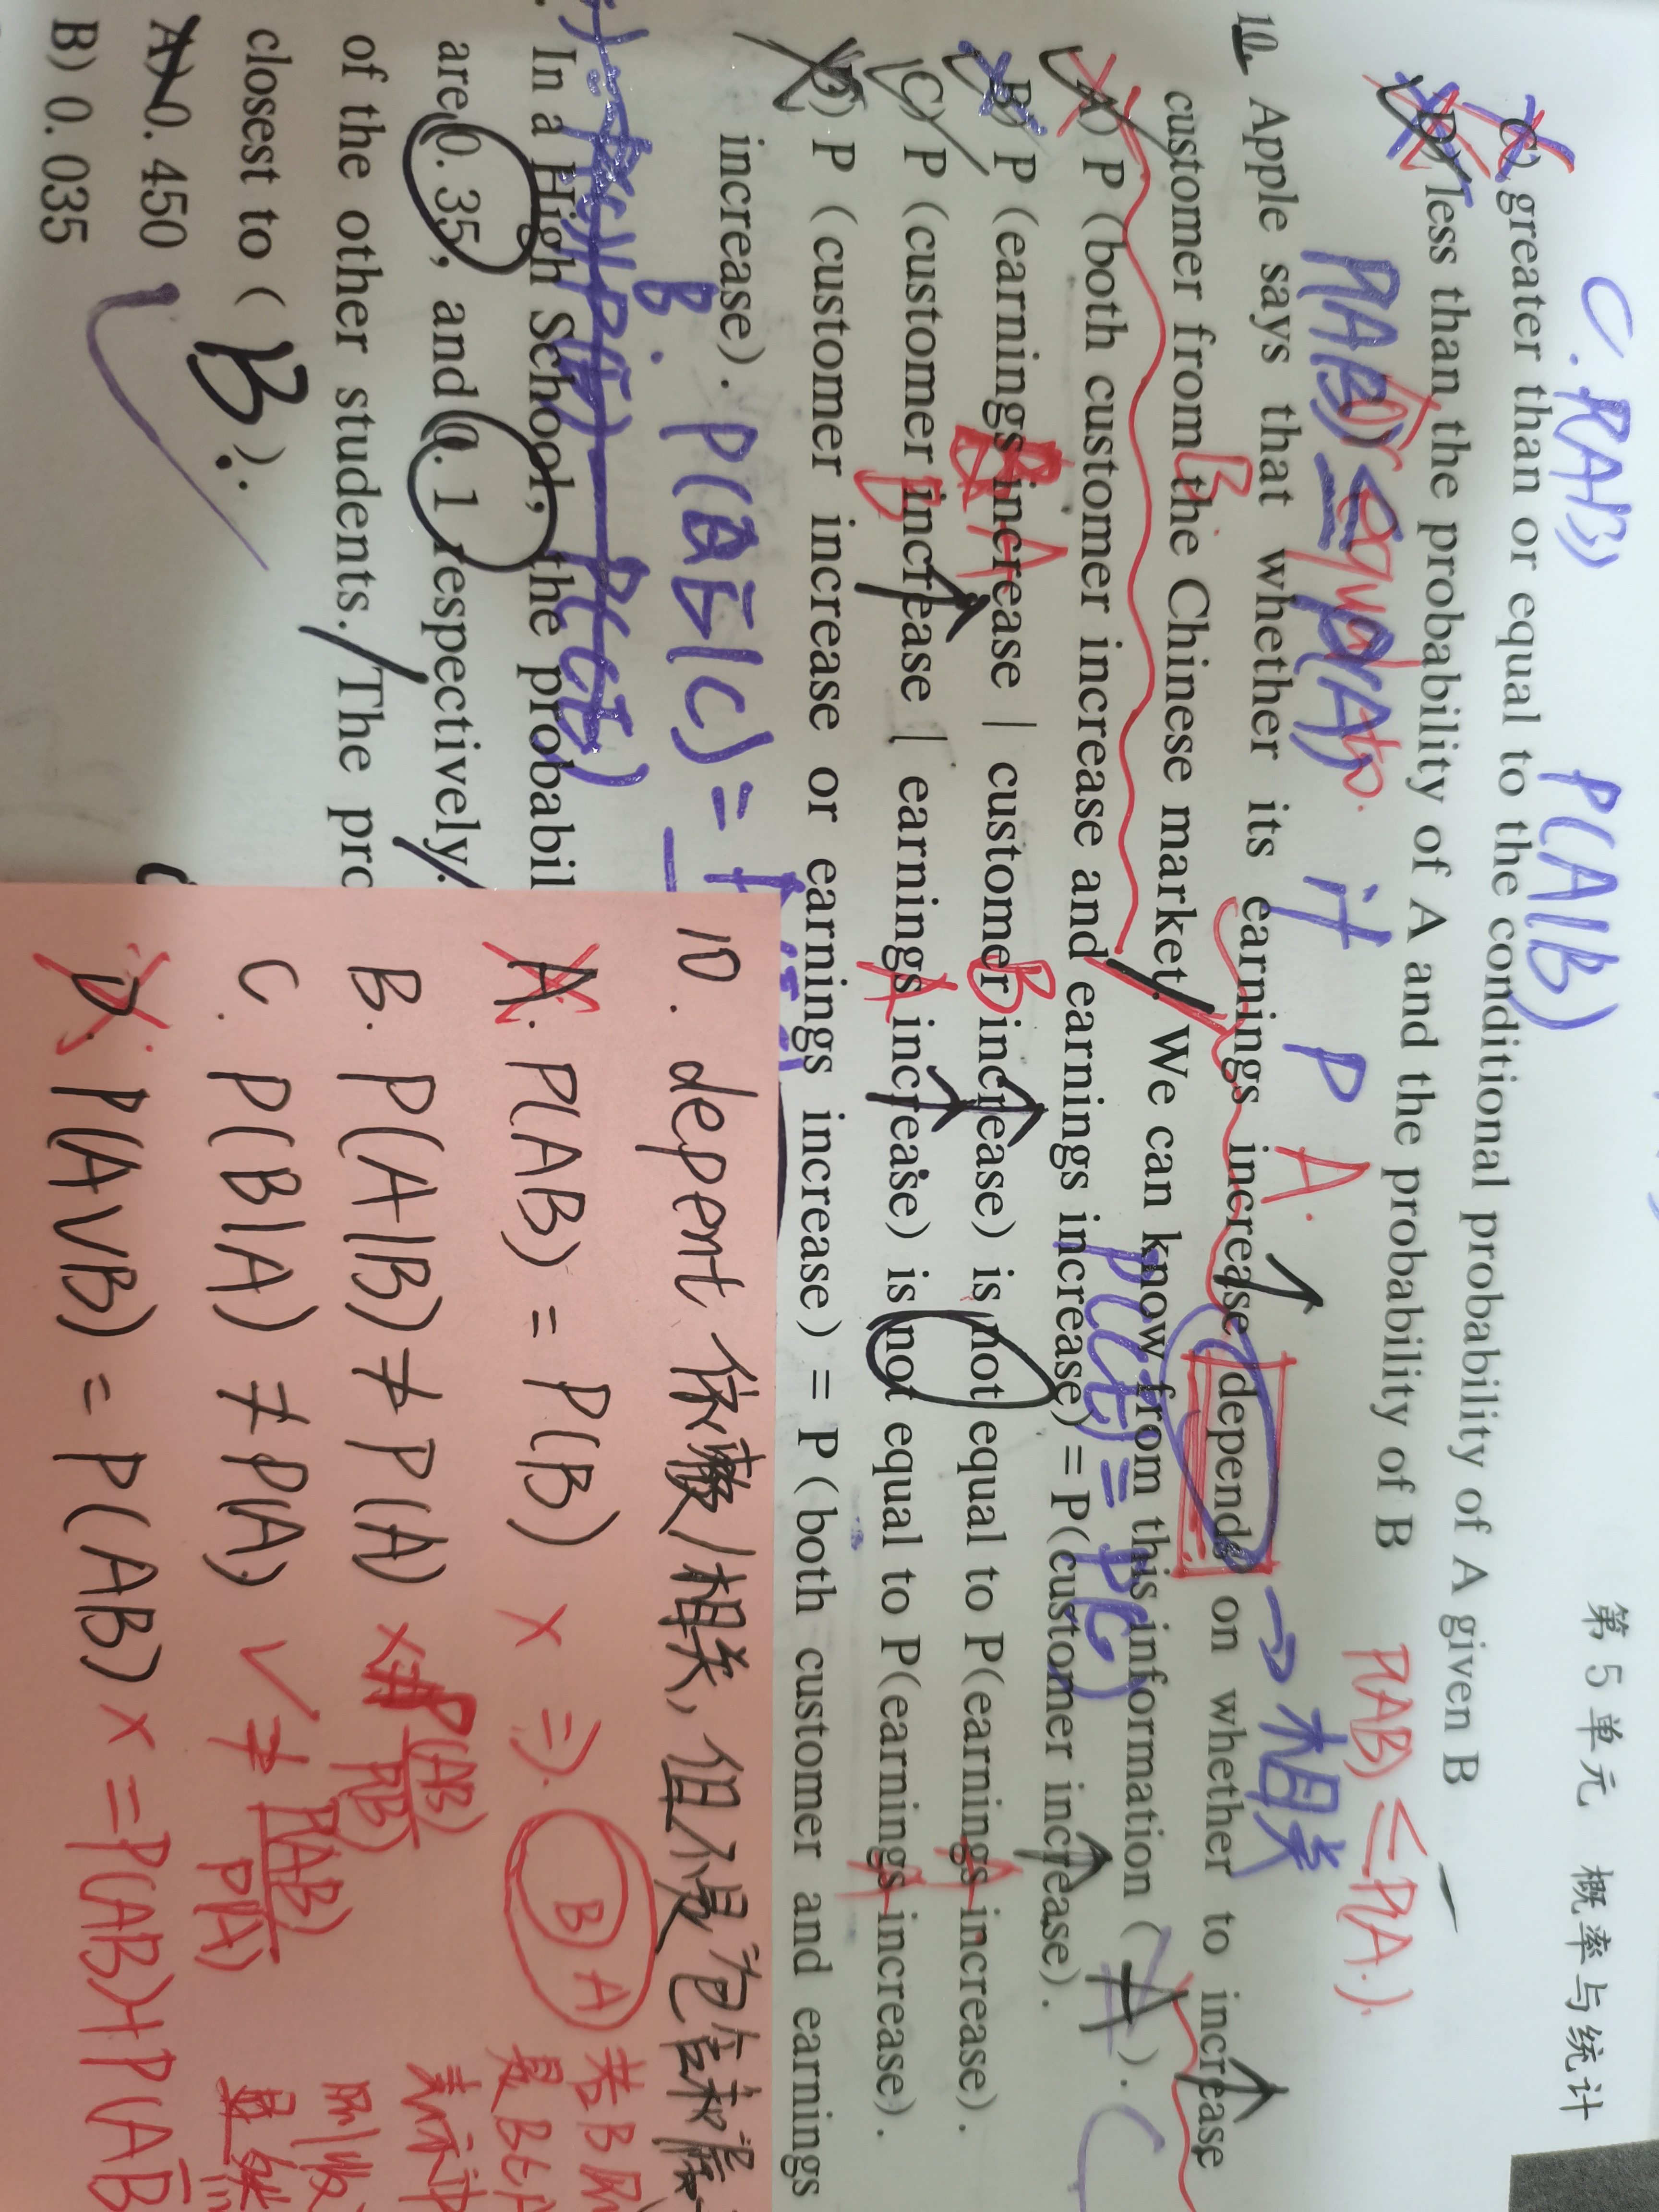 第5单元 概率与统计
C. P(AB) P(A|B)
C) greater than or equal to the conditional probability of A given B
D) less than the probability of A and the probability of B
P(AB) ≤ P(A).
10. Apple says that whether its earnings increase depends on whether to increase
→相关
customer from the Chinese market. We can know from this information ( A ).
A) P (both customer increase and earnings increase) = P(customer increase).
B) P (earnings increase | customer increase) is not equal to P(earnings increase).
C) P (customer increase | earnings increase) is not equal to P(earnings increase).
D) P (customer increase or earnings increase) = P (both customer and earnings
increase).
B.
In a High School, the probabil
are 0.35, and 0.1 respectively.
of the other students. The pro
closest to ( B ).
A) 0.450
B) 0.035
10. depent 依赖/相关,
A. P(AB) = P(B) × ⇒ B A
B. P(A|B) ≠ P(A) × P(AB) P(B)
C. P(B|A) ≠ P(A) ✓ ≠ P(AB) P(A)
D. P(A∨B) = P(AB) × = P(AB)+P(AB̅